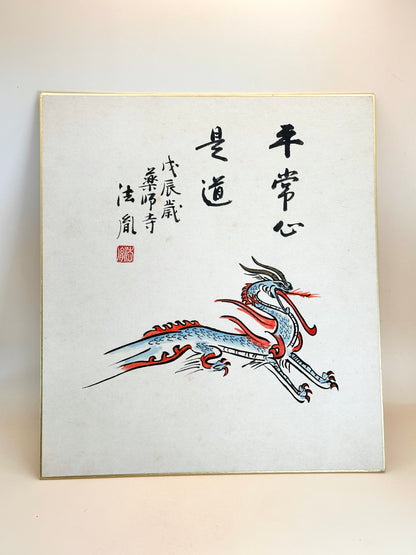 平常心
是道
戊辰歳
薬師寺
法胤